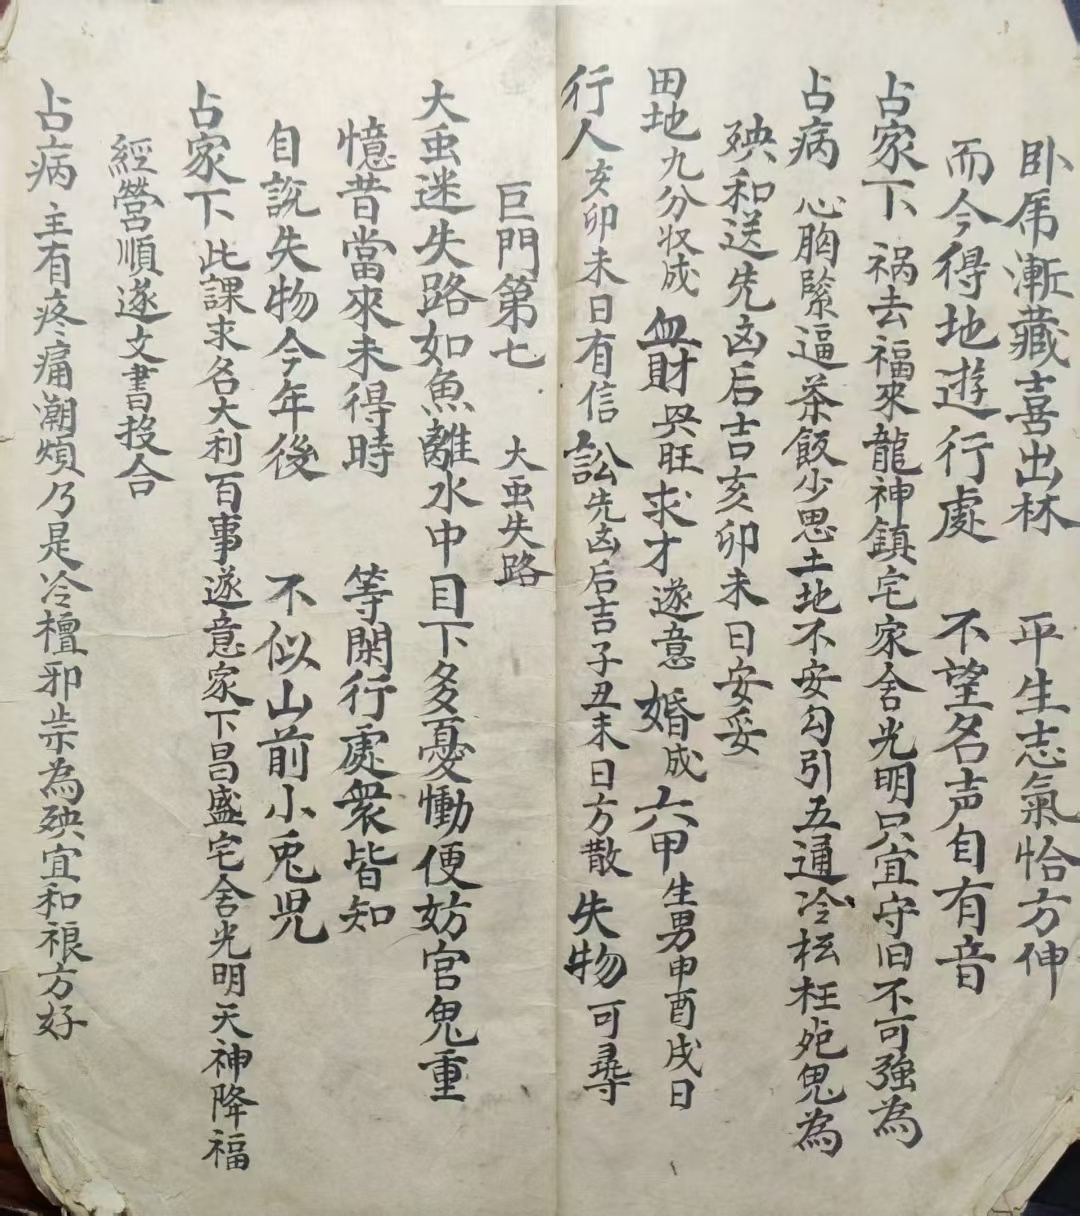 卧席漸藏喜出林 平生志氣恰方伸
而今得地遊行處 不望名声自有音
占家下 禍去福來龍神鎮宅家舍光明只宜守旧不可強為
占病 心胸緊逼茶飯少思土地不安勾引五通冷枉死鬼為
殃和送先凶后吉亥卯未日安妥
田地 九分収成 血財 興旺 求才 遂意 婚 成 六甲 生男申酉戌日
行人 亥卯未日有信 訟 先凶后吉子丑未日方散 失物 可尋
巨門第七 大虫失路
大虫迷失路如魚離水中目下多憂慟便妨官鬼重
憶昔當來未得時 等閑行處衆皆知
自說失物今年後 不似山前小兎児
占家下 此課求名大利百事遂意家下昌盛宅舍光明天神降福
經營順遂文書投合
占病 主有疼痛潮煩乃是冷檀邪祟為殃宜和禳方好